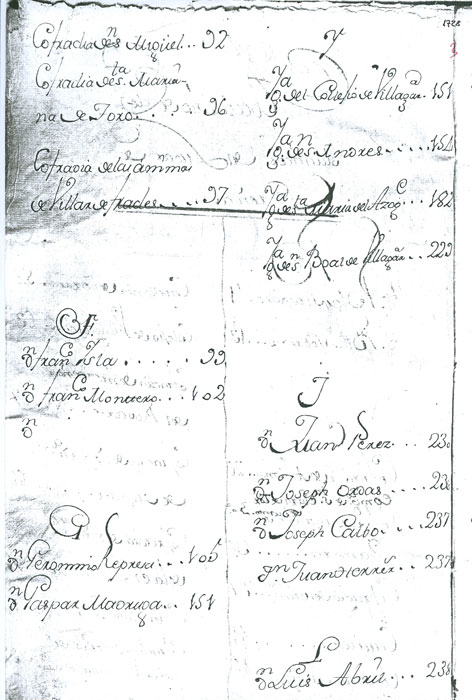 1728
Cofradia de Sn Miguel... 92
Cofradia de Sta Maria-
na de Toro... 96
Cofradia de las animas
de Villar de frades... 97
F
Dn franco Ysla..... 99
Dn franco Montero... 102
Dn
G
Dn Geronimo Reprera... 105
Dn Gaspar Madruga.. 151
Y
Ya del Conséjo de Villagan. 151
Ya de Sn Andres.... 154
Ya de Sta Maria del Azog... 182
Ya de Sn Boal de Villagan.. 229
J
Dn Juan Perez... 23
Dn Joseph Ordas.... 23
Dn Joseph Calbo.... 237
Dn Juan ferrer.. 237
L
Dn Luis Abril... 238